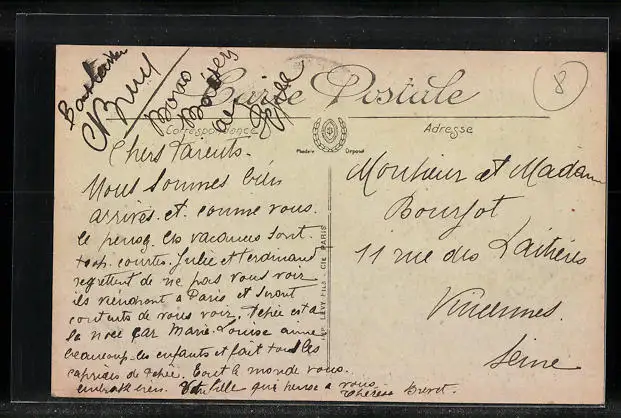 Bons
Baisers
de
8
Carte Postale
Correspondance
Adresse
Modèle Déposé
Chers Parents.
Nous Sommes bien
arrivés. et. comme vous.
le pensez les vacances sont.
trop. courtes. Julie et Ferdinand
regrettent de ne pas vous voir
ils viendront a Paris et seront
contents de vous voir, est a
la noce car Marie-Louise aime
beaucoup les enfants et fait tous les
caprices de Tout le monde vous
embrasse bien. Votre fille qui pense a vous
Thérèse
IMP. LEVY FILS & Cie PARIS
Monsieur et Madame
Bourjot
11 rue des Laitières
Vincennes.
Seine